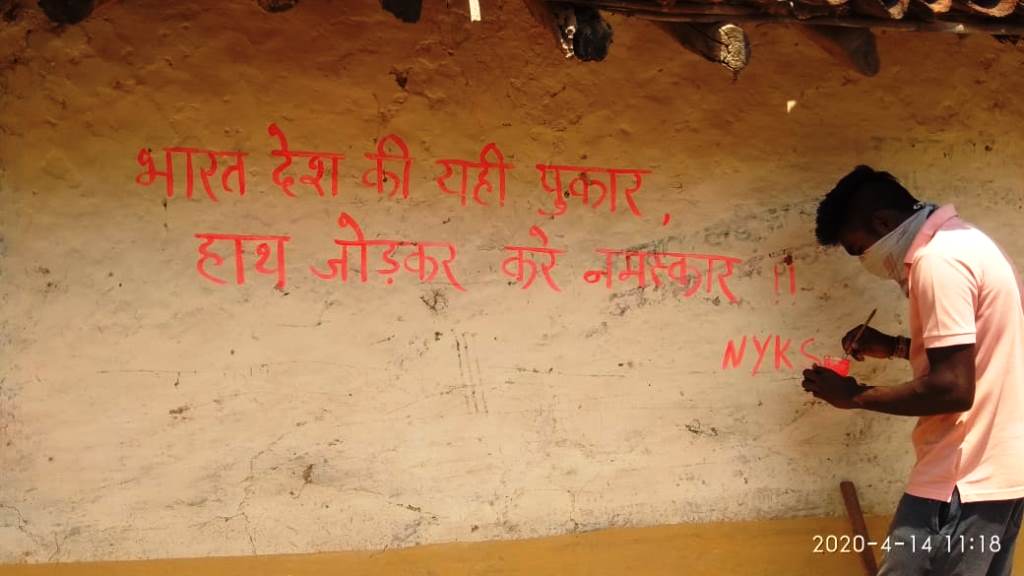 भारत देश की यही पुकार,
हाथ जोड़कर करे नमस्कार !!
NYKS
2020-4-14 11:18